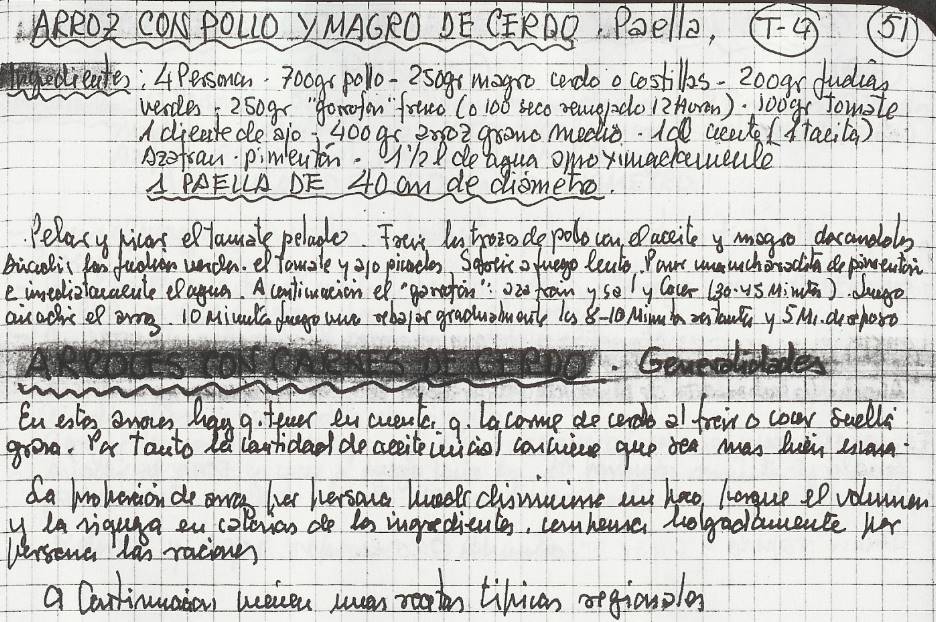 ARROZ CON POLLO Y MAGRO DE CERDO. Paella. T-4 51
Ingredientes: 4 Personas - 700gr pollo - 250gr magro cerdo o costillas - 200gr Judias
verdes - 250gr "garrofon" fresco (o 100 seco remojado 12 Horas). 100gr tomate
1 diente de ajo - 400gr arroz grano medio - 1dl aceite (1 tacita)
Azafran - pimentón - 1 1/2 l de agua aproximadamente
1 PAELLA DE 40 cm de diámetro.
Pelar y picar el tomate pelado. Freir los trozos de pollo con el aceite y magro dorandolos
las judias verdes. el tomate y ajo picados. Sofreir a fuego lento. Poner una cucharadita de pimenton
e inmediatamente el agua. A continuación el "garrofon": azafran y sal y cocer (30-45 Minutos). Luego
añadir el arroz. 10 Minutos fuego vivo rebajar gradualmente los 8-10 Minutos restantes y 5 Mi. de reposo
ARROCES CON CARNES DE CERDO. Generalidades
En estos arroces hay q. tener en cuenta q. la carne de cerdo al freir o cocer suelta
grasa. Por tanto la cantidad de aceite inicial conviene que sea mas bien escasa.
La proporción de arroz por persona puede disminuirse un poco, porque el volumen
y la riqueza en calorias de los ingredientes, compensa holgadamente por
persona las raciones
A Continuación vienen unas recetas tipicas regionales